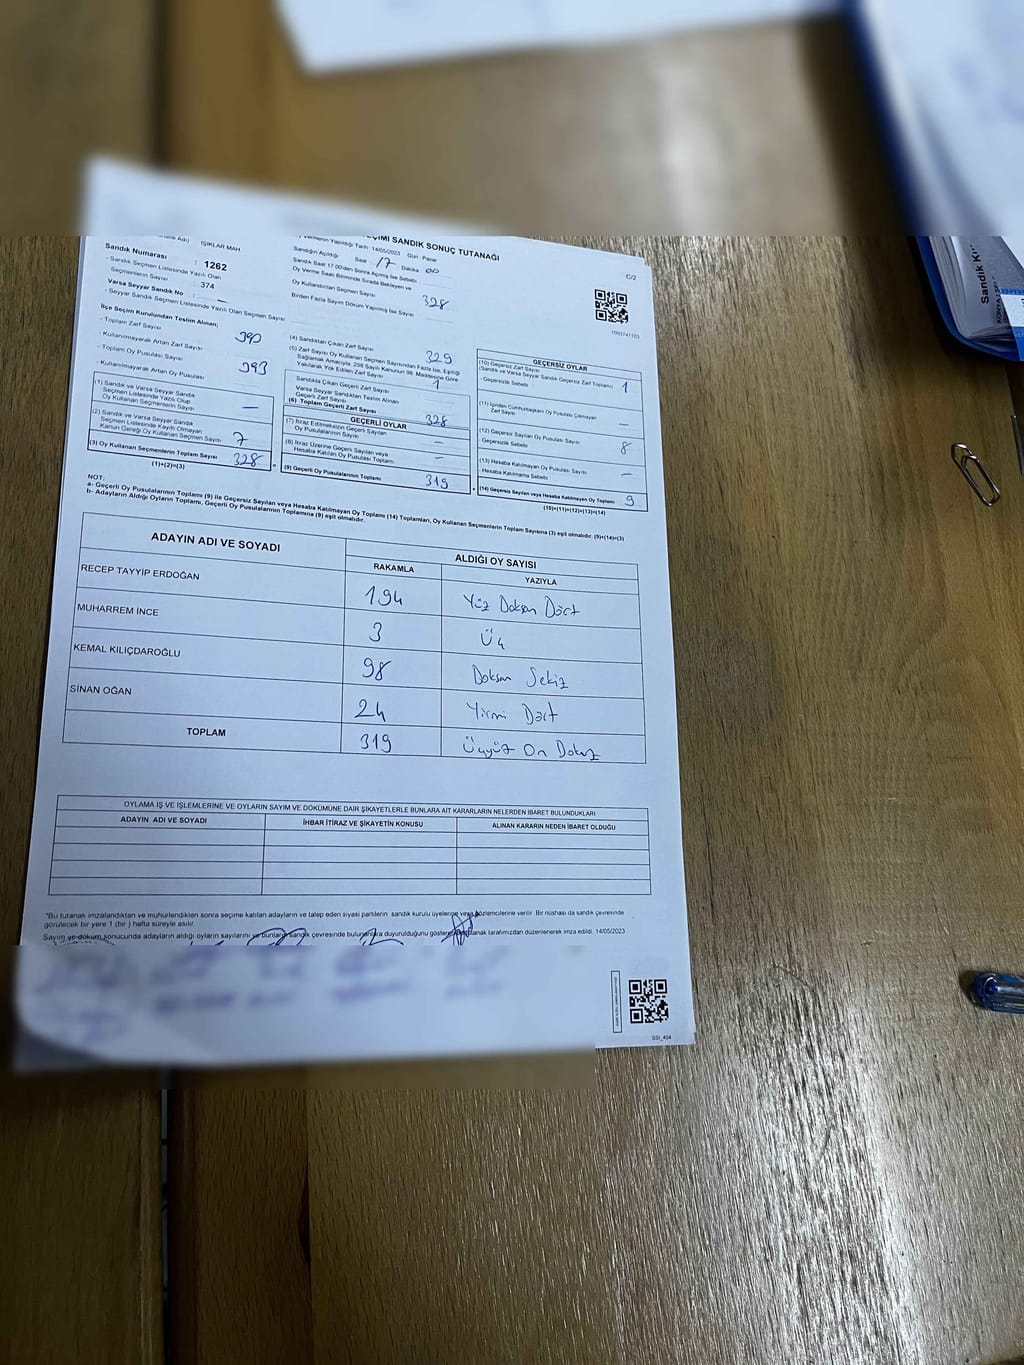 SEÇİMİ SANDIK SONUÇ TUTANAĞI
C/2
IŞIKLAR MAH
Sandık Numarası : 1262
- Sandık Seçmen Listesinde Yazılı Olan
Seçmenlerin Sayısı : 374
Varsa Seyyar Sandık No : –
- Seyyar Sandık Seçmen Listesinde Yazılı Olan Seçmen Sayısı
Oy Vermenin Yapıldığı Tarih 14/05/2023 Gün: Pazar
Sandığın Açıldığı Saat 17 Dakika 00
Sandık Saat 17.00'den Sonra Açılmış İse Sebebi
Oy Verme Saati Bitiminde Sırada Bekleyen ve
Oy Kullandırılan Seçmen Sayısı
Birden Fazla Sayım Döküm Yapılmış İse Sayısı
328
İlçe Seçim Kurulundan Teslim Alınan;
- Toplam Zarf Sayısı 390
- Kullanılmayarak Artan Zarf Sayısı
- Toplam Oy Pusulası Sayısı 393
- Kullanılmayarak Artan Oy Pusulası
(1) Sandık ve Varsa Seyyar Sandık
Seçmen Listesinde Yazılı Olup
Oy Kullanan Seçmenlerin Sayısı –
(2) Sandık ve Varsa Seyyar Sandık
Seçmen Listesinde Kayıtlı Olmayan
Kanun Gereği Oy Kullanan Seçmen Sayısı 7
(3) Oy Kullanan Seçmenlerin Toplam Sayısı 328
(1)+(2)=(3)
(4) Sandıktan Çıkan Zarf Sayısı 329
(5) Zarf Sayısı Oy Kullanan Seçmen Sayısından Fazla İse, Eşitliği
Sağlamak Amacıyla, 298 Sayılı Kanunun 98. Maddesine Göre
Yakılarak Yok Edilen Zarf Sayısı 1
Sandıkta Çıkan Geçerli Zarf Sayısı
Varsa Seyyar Sandıktan Teslim Alınan
Geçerli Zarf Sayısı
(6) Toplam Geçerli Zarf Sayısı 328
GEÇERLİ OYLAR
(7) İtiraz Edilmeksizin Geçerli Sayılan
Oy Pusulalarının Sayısı –
(8) İtiraz Üzerine Geçerli Sayılan veya
Hesaba Katılan Oy Pusulası Toplamı –
(9) Geçerli Oy Pusulalarının Toplamı 319
GEÇERSİZ OYLAR
(10) Geçersiz Zarf Sayısı
(Sandık ve Varsa Seyyar Sandık Geçersiz Zarf Toplamı) 1
- Geçersizlik Sebebi
(11) İçinden Cumhurbaşkanı Oy Pusulası Çıkmayan
Zarf Sayısı –
(12) Geçersiz Sayılan Oy Pusulası Sayısı 8
- Geçersizlik Sebebi
(13) Hesaba Katılmayan Oy Pusulası Sayısı –
- Hesaba Katılmama Sebebi
(14) Geçersiz Sayılan veya Hesaba Katılmayan Oy Toplamı 9
(10)+(11)+(12)+(13)=(14)
NOT:
a- Geçerli Oy Pusulalarının Toplamı (9) ile Geçersiz Sayılan veya Hesaba Katılmayan Oy Toplamı (14) Toplamları, Oy Kullanan Seçmenlerin Toplam Sayısına (3) eşit olmalıdır. (9)+(14)=(3)
b- Adayların Aldığı Oyların Toplamı, Geçerli Oy Pusulalarının Toplamına (9) eşit olmalıdır.
ADAYIN ADI VE SOYADI
ALDIĞI OY SAYISI
RAKAMLA YAZIYLA
RECEP TAYYİP ERDOĞAN 194 Yüz Doksan Dört
MUHARREM İNCE 3 Üç
KEMAL KILIÇDAROĞLU 98 Doksan Sekiz
SİNAN OĞAN 24 Yirmi Dört
TOPLAM 319 Üçyüz On Dokuz
OYLAMA İŞ VE İŞLEMLERİNE VE OYLARIN SAYIM VE DÖKÜMÜNE DAİR ŞİKAYETLERLE BUNLARA AİT KARARLARIN NELERDEN İBARET BULUNDUKLARI
ADAYIN ADI VE SOYADI İHBAR İTİRAZ VE ŞİKAYETİN KONUSU ALINAN KARARIN NEDEN İBARET OLDUĞU
"Bu tutanak imzalandıktan ve mühürlendikten sonra seçime katılan adayların ve talep eden siyasi partilerin sandık kurulu üyelerine veya gözlemcilerine verilir. Bir nüshası da sandık çevresinde
görülecek bir yere 1 (bir ) hafta süreyle asılır
Sayım ve döküm sonucunda adayların aldığı oyların sayılarını ve bunların sandık çevresinde bulunanlara duyurulduğunu gösteren tutanak tarafımızdan düzenlenerek imza edildi. 14/05/2023
GSİ_404
Sandık